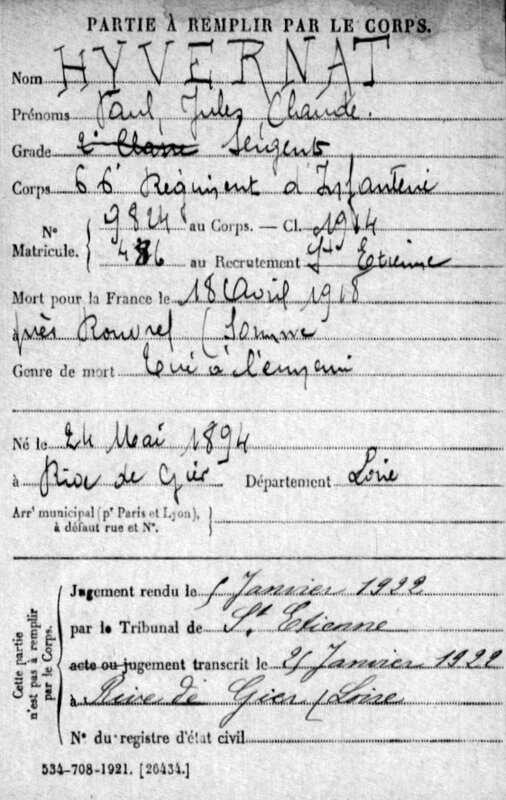 PARTIE À REMPLIR PAR LE CORPS.
Nom HYVERNAT
Prénoms Paul, Jules, Claude.
Grade 2e Classe Sergent
Corps 66e Régiment d'Infanterie
N° Matricule. 9824 au Corps. — Cl. 1914
486 au Recrutement St Etienne
Mort pour la France le 18 Avril 1918
à près Rouvrel (Somme
Genre de mort Tué à l'ennemi
Né le 24 Mai 1894
à Rive de Gier Département Loire
Arrt municipal (pr Paris et Lyon),
à défaut rue et N°.
Cette partie n'est pas à remplir par le Corps.
Jugement rendu le 5 Janvier 1922
par le Tribunal de St Etienne
acte ou jugement transcrit le 25 Janvier 1922
à Rive de Gier (Loire
N° du registre d'état civil
534-708-1921. [26434.]